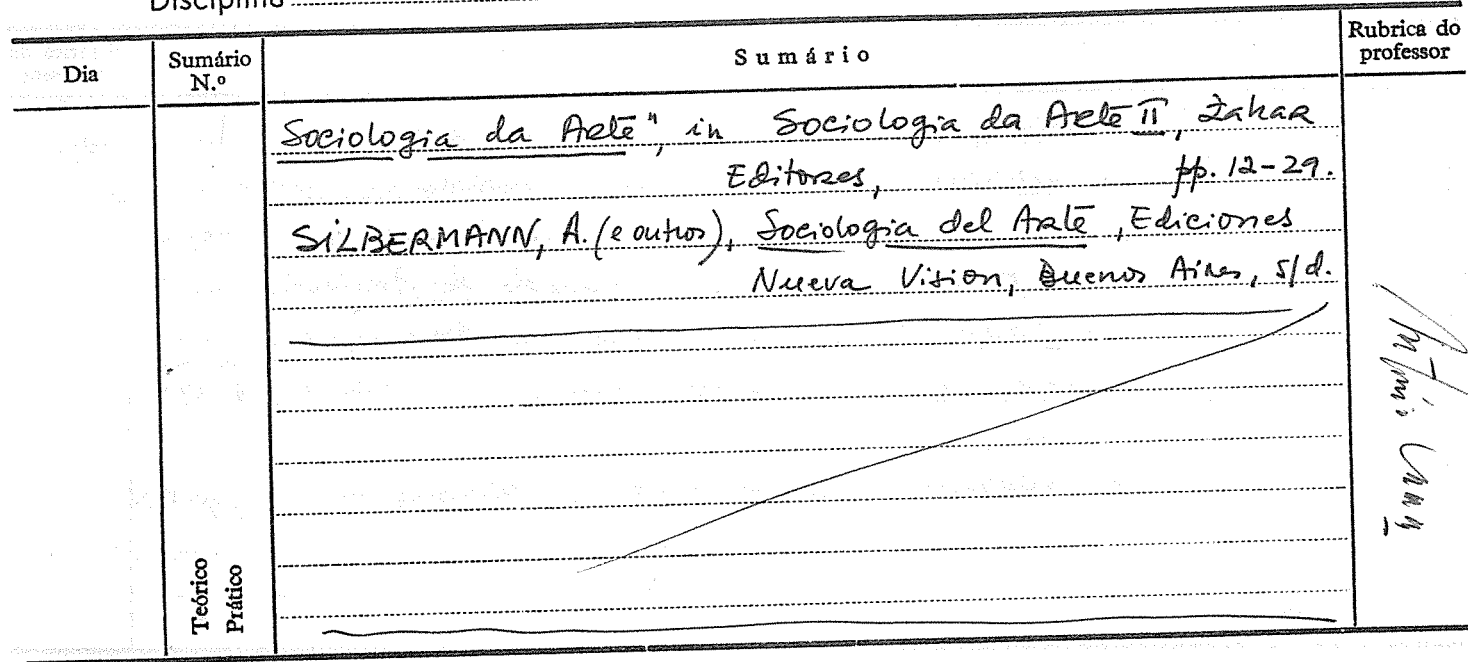 Disciplina
Dia
Sumário N.º
Sumário
Rubrica do professor
Sociologia da Arte", in Sociologia da Arte II, Zahar
Editores, pp. 12-29.
SILBERMANN, A. (e outros), Sociologia del Arte, Ediciones
Nueva Vision, Buenos Aires, s/d.
Teórico
Prático
António